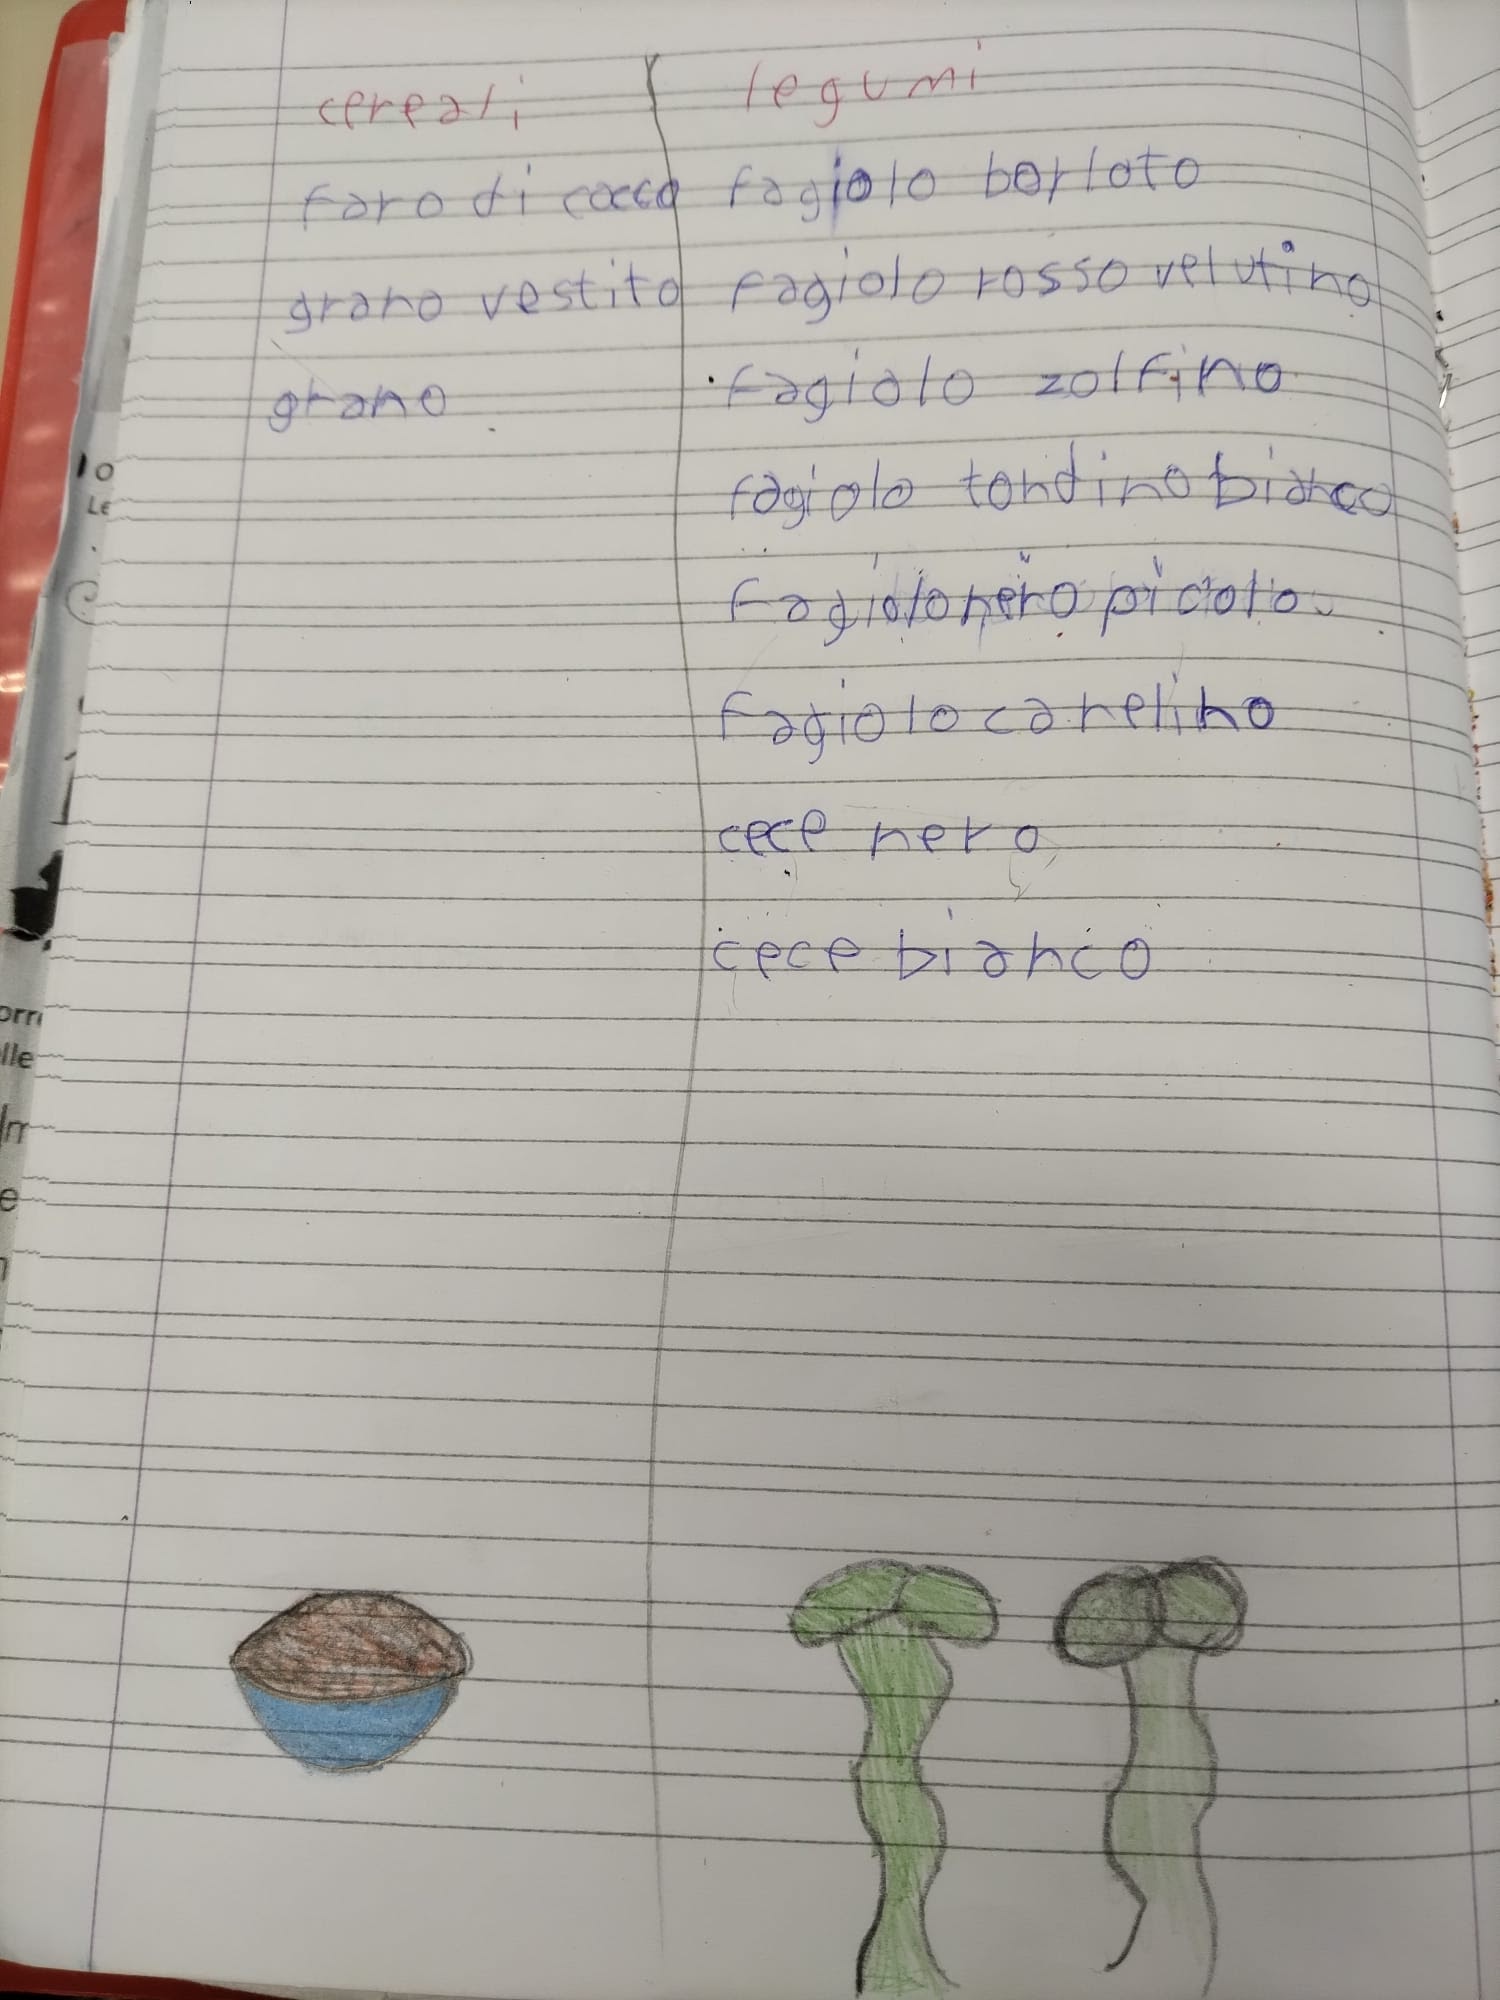 cereali
faro di cocco
grano vestito
grano
legumi
fagiolo borloto
fagiolo rosso velutino
fagiolo zolfino
fagiolo tondino bianco
fagiolo nero picolo
fagiolo canelino
cece nero
cece bianco